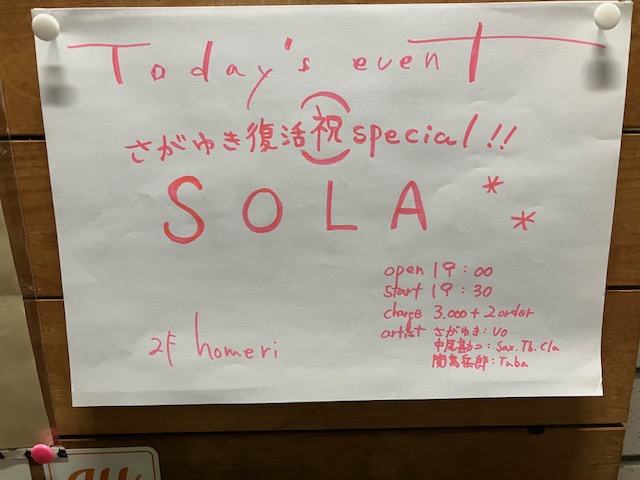 Today's event
さがゆき復活祝special!!
SOLA **
open 19:00
start 19:30
charge 3.000+2order
artist さがゆき:Vo
中尾勘二:Sax.Tb.Cla
関島岳郎:Tuba
2F homeri